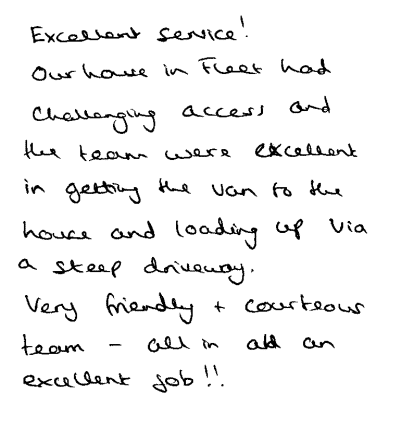 Excellent service!
Our house in Fleet had
challenging access and
the team were excellent
in getting the van to the
house and loading up via
a steep driveway.
Very friendly + courteous
team - all in all an
excellent job!!